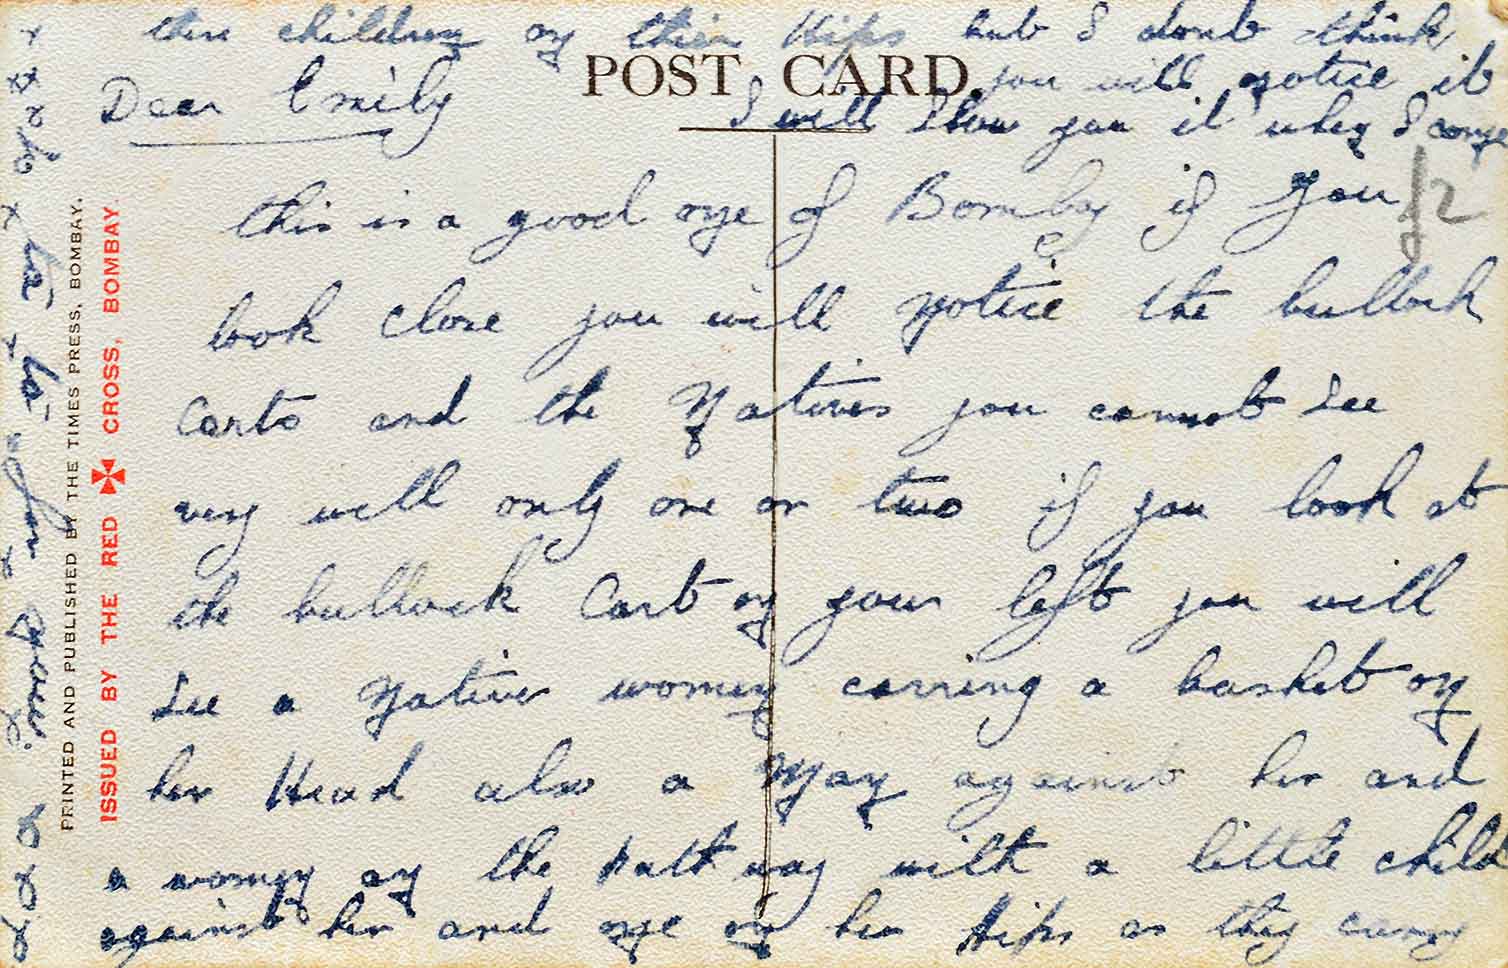 POST CARD.
Dear Emily
this is a good one of Bombay if you
look close you will notice the bullock
Carts and the Natives you cannot see
very well only one or two if you look at
the bullock Cart on your left you will
see a Native women carring a basket on
her Head also a Man against her and
a women on the path way with a little child
against her and one on her Hips as they carry
there children on their Hips but I dont think
you will notice it
I will show you it when I come
£2
PRINTED AND PUBLISHED BY THE TIMES PRESS, BOMBAY.
ISSUED BY THE RED CROSS, BOMBAY.